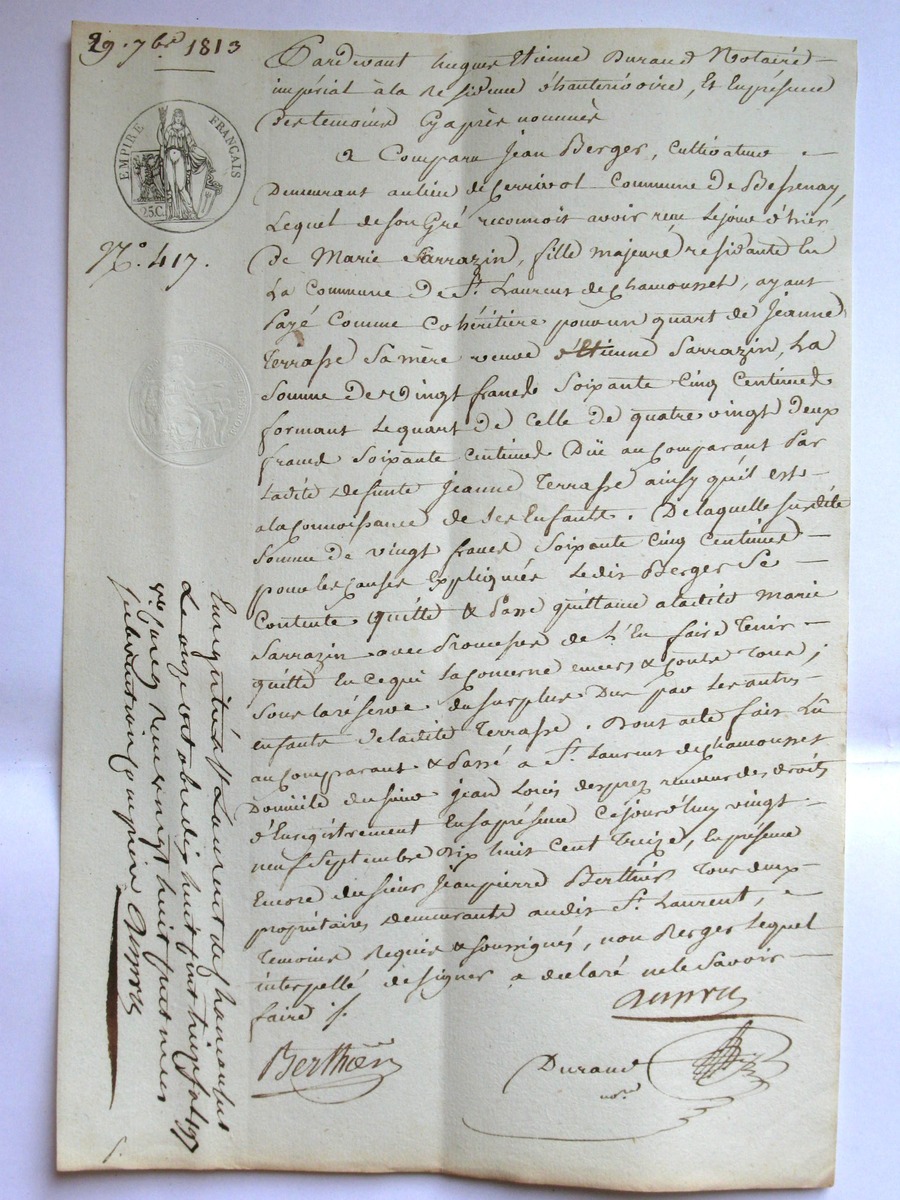 29. 7bre 1813
EMPIRE FRANÇAIS
25.C.
No. 417.
Pardevant hugues Etienne Durand Notaire
impérial à la Residence d'hauterivoire, Et En présence
des temoins Cy après nommés
a Comparu Jean Berger, Cultivateur
Demeurant au lieu de Commune De Bessenay,
Lequel de son Gré reconnoit avoir recu Le jour d'hier
De Marie Sarrazin, fille majeure residante En
La Commune De St. Laurent de Chamousset, ayant
payé Comme Cohéritière pour un quart de Jeanne
Terrasse Sa mère veuve d'Etienne Sarrazin, La
Somme De vingt francs Soixante Cinq Centimes
formant Le quart De Celle De quatre vingt Deux
francs Soixante Centimes Düe au Comparant Par
Ladite Defunte Jeanne Terrasse ainsy qu'il est
a la Connoissance de Ses Enfants. De laquelle susdite
Somme De vingt francs Soixante Cinq Centimes
pour les Causes Expliquées Ledit Berger Se
Contente quitte & Passe quittance a ladite Marie
Sarrazin avec Promesse de L'En faire Tenir
quitte En Ce qui La Concerne envers & Contre Tous;
Sous la réserve du Surplus Dû par Les autres
enfants De ladite Terrasse. Dont acte fait Lu
au Comparant & Passé a St. Laurent de Chamousset
Domicile du Sieur Jean Loüis desprez receveur des droits
d'Enregistrement En sa présence Ce jourd'huy vingt
neuf Septembre Dix huit Cent Treize, En présence
Encore du sieur Jean pierre Berthier Tous deux
propriétaires demeurants audit St. Laurent,
Temoins Requis & Soussignés, non Berger Lequel
interpellé de signer a déclaré ne le Savoir
faire ./.
Berthier
Durand
nore.
Enregistré à St. Laurent de chamousset
Le onze octobre dix huit cent treize fol. 197